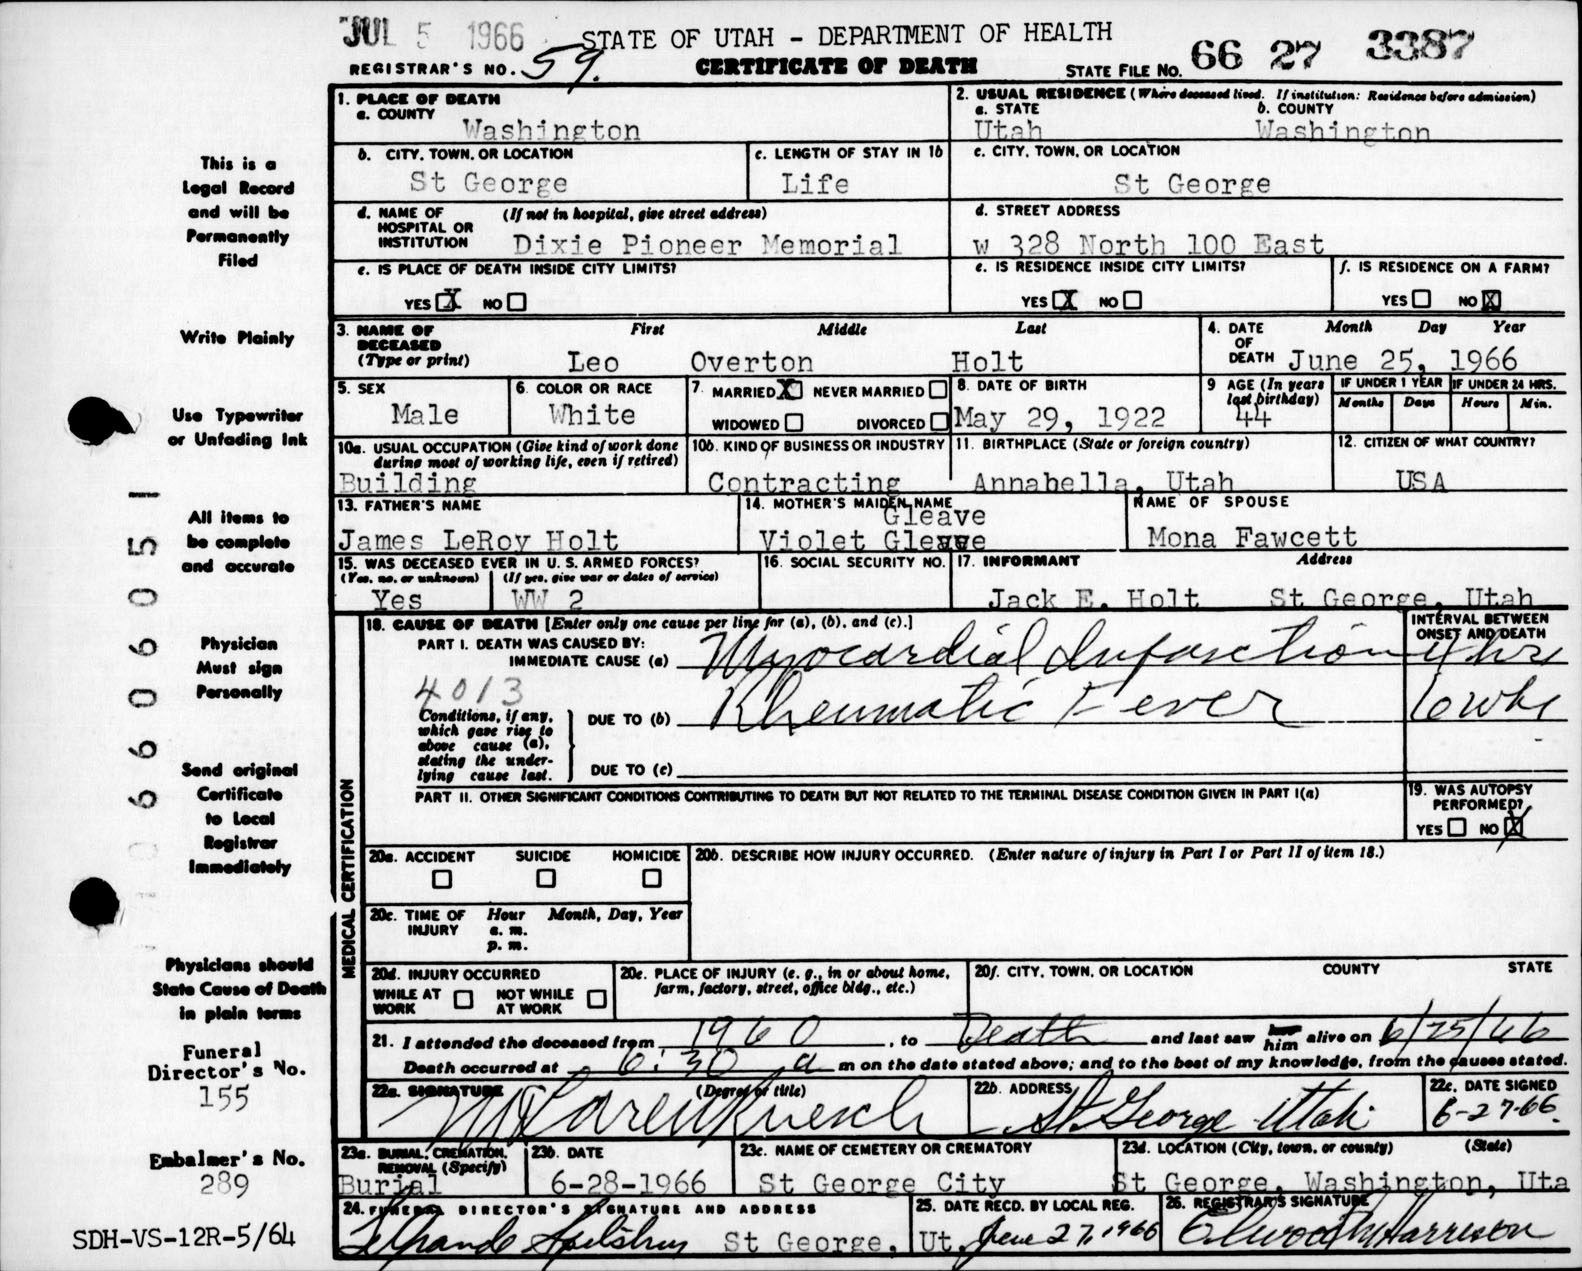 JUL 5 1966 STATE OF UTAH - DEPARTMENT OF HEALTH 66 27 3387
REGISTRAR'S NO. 59. CERTIFICATE OF DEATH STATE FILE NO.
This is a
Legal Record
and will be
Permanently
Filed
Write Plainly
Use Typewriter
or Unfading Ink
All items to
be complete
and accurate
Physician
Must sign
Personally
Send original
Certificate
to Local
Registrar
Immediately
Physicians should
State Cause of Death
in plain terms
Funeral
Director's No.
155
Embalmer's No.
289
SDH-VS-12R-5/64
1. PLACE OF DEATH
a. COUNTY
Washington
2. USUAL RESIDENCE (Where deceased lived. If institution: Residence before admission)
a. STATE b. COUNTY
Utah Washington
b. CITY, TOWN, OR LOCATION
St George
c. LENGTH OF STAY IN 1b
Life
c. CITY, TOWN, OR LOCATION
St George
d. NAME OF (If not in hospital, give street address)
HOSPITAL OR
INSTITUTION Dixie Pioneer Memorial
d. STREET ADDRESS
w 328 North 100 East
e. IS PLACE OF DEATH INSIDE CITY LIMITS?
YES X NO
e. IS RESIDENCE INSIDE CITY LIMITS?
YES X NO
f. IS RESIDENCE ON A FARM?
YES NO X
3. NAME OF First Middle Last
DECEASED
(Type or print) Leo Overton Holt
4. DATE Month Day Year
OF
DEATH June 25, 1966
5. SEX
Male
6. COLOR OR RACE
White
7. MARRIED X NEVER MARRIED
WIDOWED DIVORCED
8. DATE OF BIRTH
May 29, 1922
9 AGE (In years
last birthday)
44
IF UNDER 1 YEAR IF UNDER 24 HRS.
Months Days Hours Min.
10a. USUAL OCCUPATION (Give kind of work done
during most of working life, even if retired)
Building
10b. KIND OF BUSINESS OR INDUSTRY
Contracting
11. BIRTHPLACE (State or foreign country)
Annabella, Utah
12. CITIZEN OF WHAT COUNTRY?
USA
13. FATHER'S NAME
James LeRoy Holt
14. MOTHER'S MAIDEN NAME
Gleave
Violet Gleave
NAME OF SPOUSE
Mona Fawcett
15. WAS DECEASED EVER IN U. S. ARMED FORCES?
(Yes, no, or unknown) (If yes, give war or dates of service)
Yes WW 2
16. SOCIAL SECURITY NO.
17. INFORMANT Address
Jack E. Holt St George, Utah
MEDICAL CERTIFICATION
18. CAUSE OF DEATH [Enter only one cause per line for (a), (b), and (c).]
INTERVAL BETWEEN
ONSET AND DEATH
PART I. DEATH WAS CAUSED BY:
IMMEDIATE CAUSE (a) Myocardial Infarction 4 hrs
4013
Conditions, if any,
which gave rise to
above cause (a),
stating the under-
lying cause last.
DUE TO (b) Rheumatic Fever 6 wks
DUE TO (c)
PART II. OTHER SIGNIFICANT CONDITIONS CONTRIBUTING TO DEATH BUT NOT RELATED TO THE TERMINAL DISEASE CONDITION GIVEN IN PART I(a)
19. WAS AUTOPSY
PERFORMED?
YES NO X
20a. ACCIDENT SUICIDE HOMICIDE
20b. DESCRIBE HOW INJURY OCCURRED. (Enter nature of injury in Part I or Part II of item 18.)
20c. TIME OF Hour Month, Day, Year
INJURY a. m.
p. m.
20d. INJURY OCCURRED
WHILE AT NOT WHILE
WORK AT WORK
20e. PLACE OF INJURY (e. g., in or about home,
farm, factory, street, office bldg., etc.)
20f. CITY, TOWN, OR LOCATION COUNTY STATE
21. I attended the deceased from 1960, to Death and last saw her him alive on 6/25/66
Death occurred at 6:30 a m on the date stated above; and to the best of my knowledge, from the causes stated.
22a. SIGNATURE (Degree or title)
22b. ADDRESS
St. George Utah
22c. DATE SIGNED
6-27-66.
23a. BURIAL, CREMATION,
REMOVAL (Specify)
Burial
23b. DATE
6-28-1966
23c. NAME OF CEMETERY OR CREMATORY
St George City
23d. LOCATION (City, town, or county) (State)
St George, Washington, Uta
24. FUNERAL DIRECTOR'S SIGNATURE AND ADDRESS
St George, Ut.
25. DATE RECD. BY LOCAL REG.
June 27, 1966
26. REGISTRAR'S SIGNATURE
Harrison